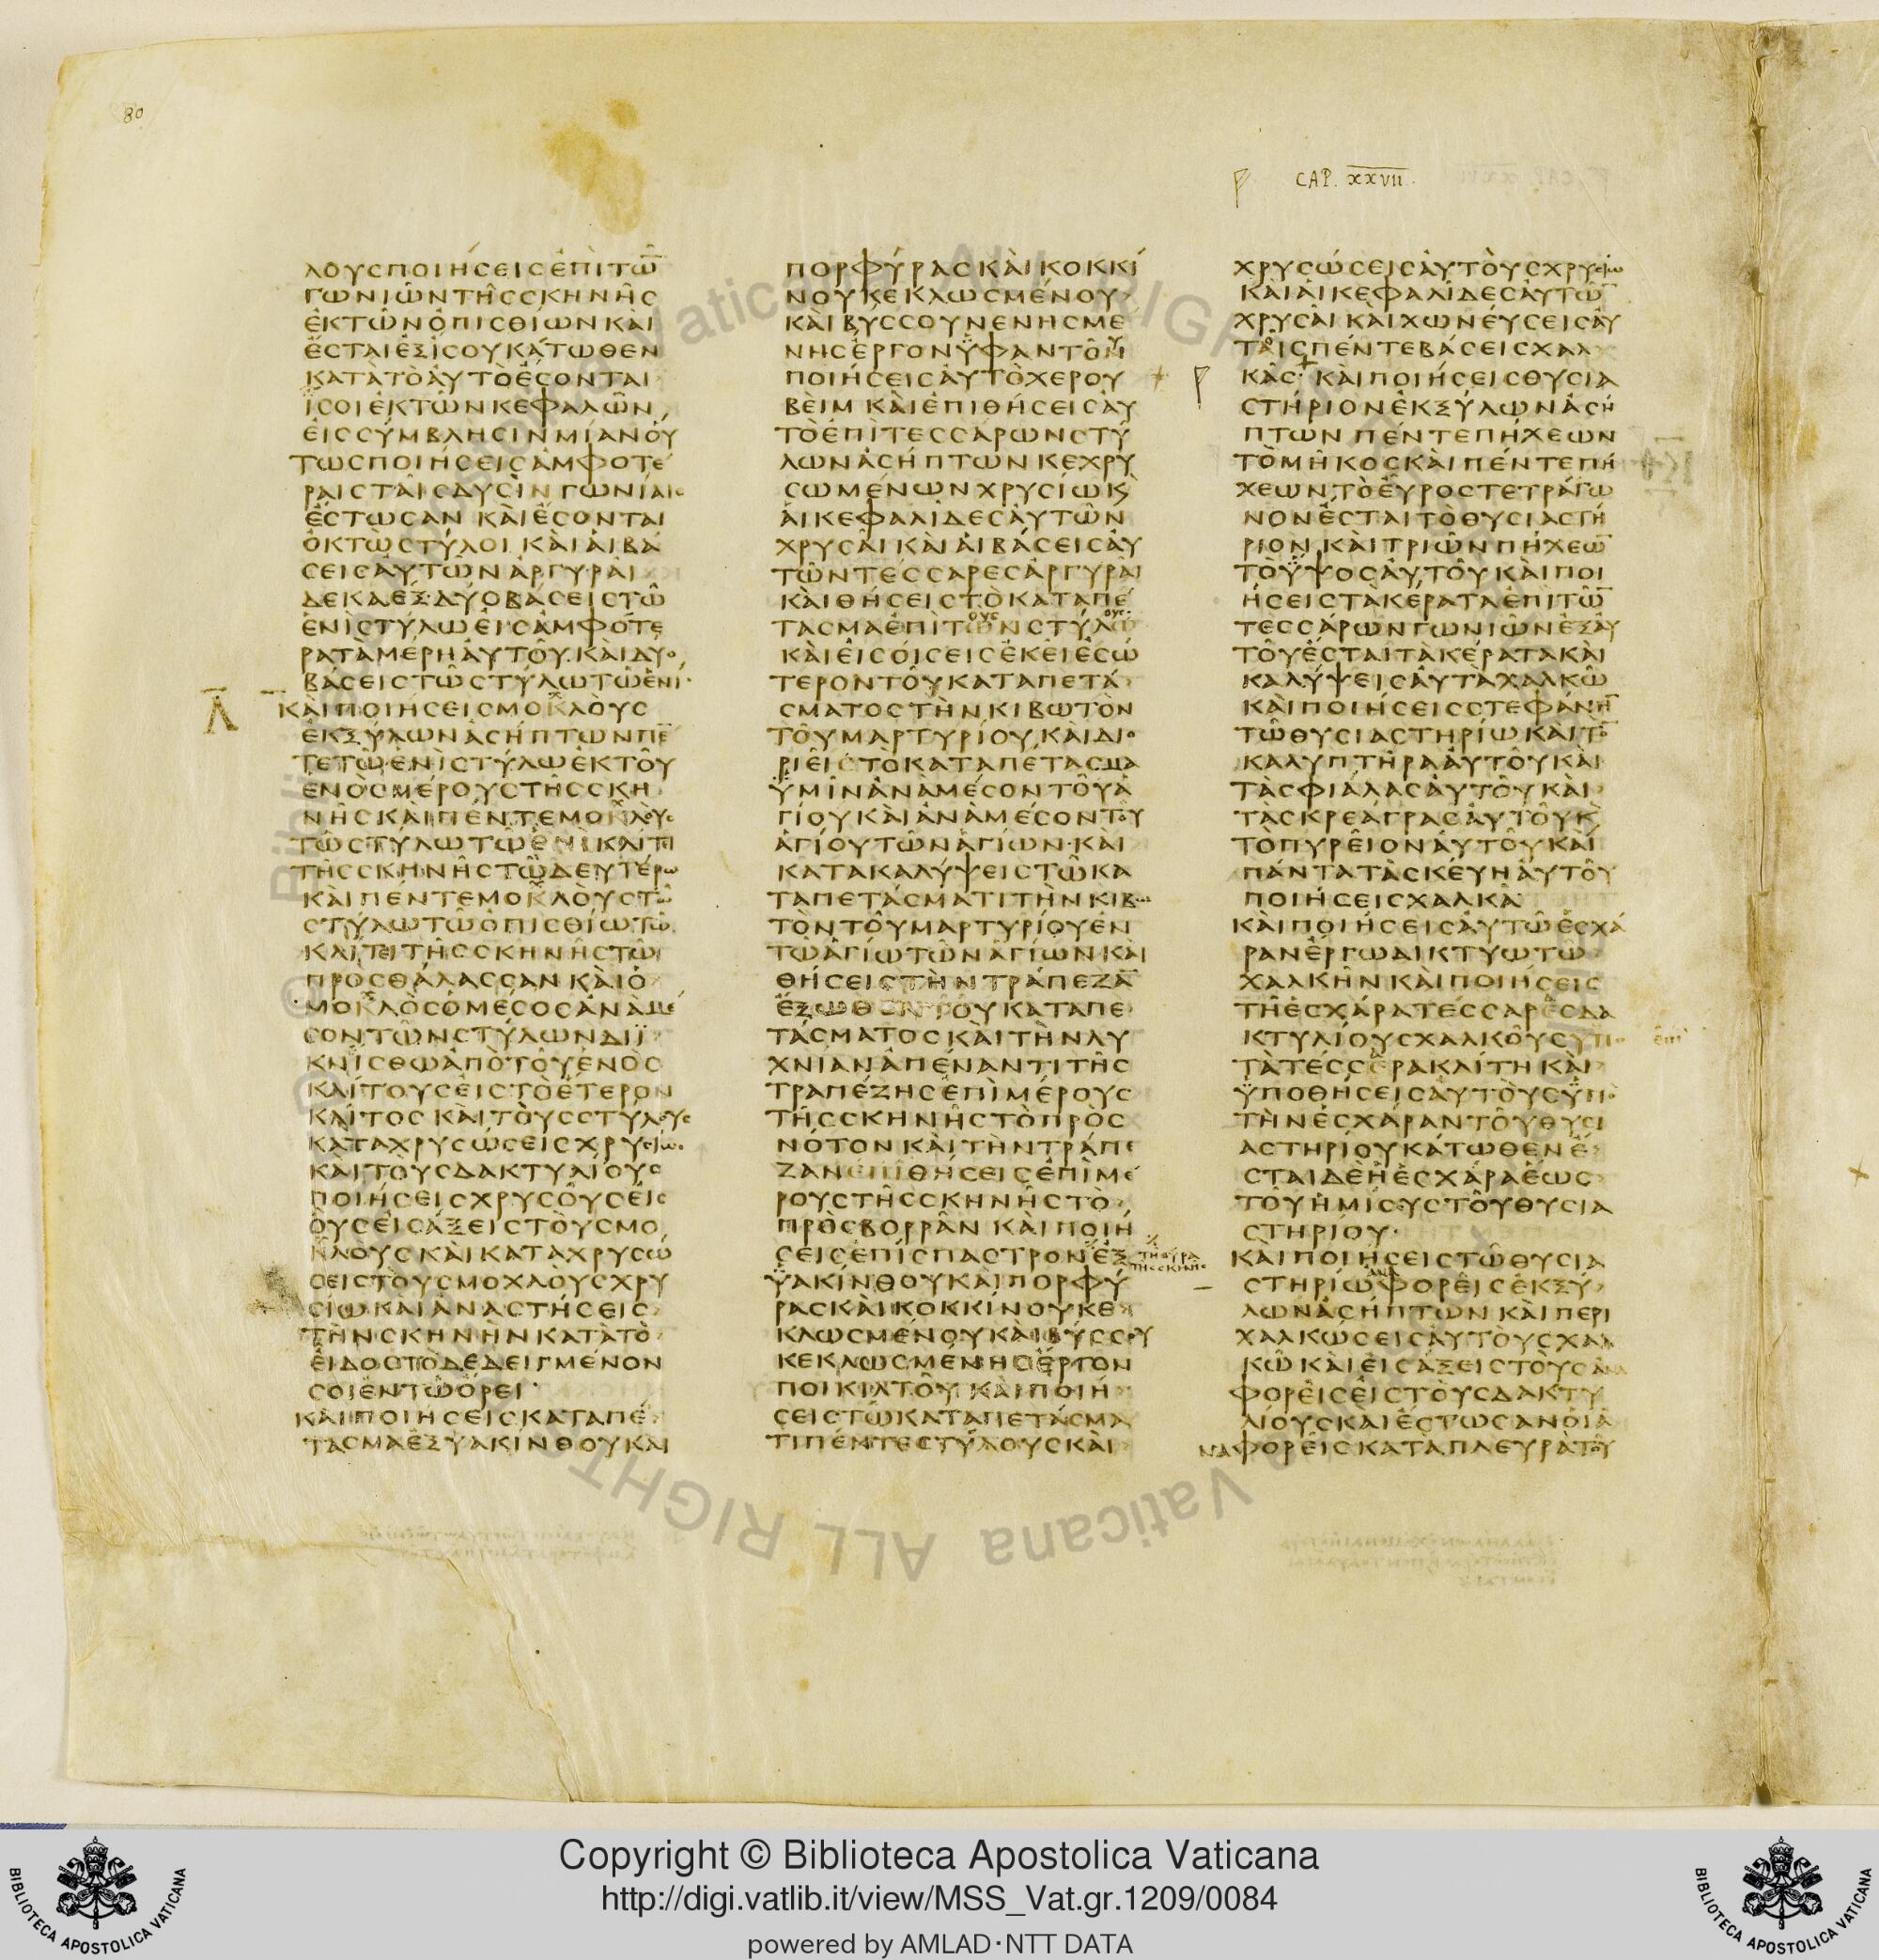 80
CAP. XXVII.
ΛΟΥΣΠΟΙΗΣΕΙΣΕΠΙΤΩ̅
ΓΩΝΙΩΝΤΗΣΣΚΗΝΗΣ
ΕΚΤΩΝΟΠΙΣΘΙΩΝΚΑΙ
ΕΣΤΑΙΕΞΙΣΟΥΚΑΤΩΘΕΝ
ΚΑΤΑΤΟΑΥΤΟΕΣΟΝΤΑΙ
ΙΣΟΙΕΚΤΩΝΚΕΦΑΛΩΝ
ΕΙΣΣΥΜΒΛΗΣΙΝΜΙΑΝΟΥ
ΤΩΣΠΟΙΗΣΕΙΣΑΜΦΟΤΕ
ΡΑΙΣΤΑΙΣΔΥΣΙΝΓΩΝΙΑΙΣ
ΕΣΤΩΣΑΝ ΚΑΙΕΣΟΝΤΑΙ
ΟΚΤΩΣΤΥΛΟΙ ΚΑΙΑΙΒΑ
ΣΕΙΣΑΥΤΩΝΑΡΓΥΡΑΙ
ΔΕΚΑΕΞΔΥΟΒΑΣΕΙΣΤΩ
ΕΝΙΣΤΥΛΩΕΙΣΑΜΦΟΤΕ
ΡΑΤΑΜΕΡΗΑΥΤΟΥ ΚΑΙΔΥΟ
ΒΑΣΕΙΣΤΩΣΤΥΛΩΤΩΕΝΙ
Λ̅ ΚΑΙΠΟΙΗΣΕΙΣΜΟΚΛΟΥΣ
ΕΚΞΥΛΩΝΑΣΗΠΤΩΝΠΕ̅
ΤΕΤΩΕΝΙΣΤΥΛΩΕΚΤΟΥ
ΕΝΟΣΜΕΡΟΥΣΤΗΣΣΚΗ
ΝΗΣΚΑΙΠΕΝΤΕΜΟΚΛΟΥΣ
ΤΩΣΤΥΛΩΤΩΕΝΙΚΛΙΤΙ
ΤΗΣΣΚΗΝΗΣΤΩΔΕΥΤΕΡΩ
ΚΑΙΠΕΝΤΕΜΟΚΛΟΥΣΤΩ
ΣΤΥΛΩΤΩΟΠΙΣΘΙΩΤΩ
ΚΛΙΤΕΙΤΗΣΣΚΗΝΗΣΤΩ
ΠΡΟΣΘΑΛΑΣΣΑΝ ΚΑΙΟ
ΜΟΚΛΟΣΟΜΕΣΟΣΑΝΑΜΕ
ΣΟΝΤΩΝΣΤΥΛΩΝΔΙΪ
ΚΝΙΣΘΩΑΠΟΤΟΥΕΝΟΣ
ΚΛΙΤΟΥΣΕΙΣΤΟΕΤΕΡΟΝ
ΚΛΙΤΟΣ ΚΑΙΤΟΥΣΣΤΥΛΟΥΣ
ΚΑΤΑΧΡΥΣΩΣΕΙΣΧΡΥΣΙΩ
ΚΑΙΤΟΥΣΔΑΚΤΥΛΙΟΥΣ
ΠΟΙΗΣΕΙΣΧΡΥΣΟΥΣΕΙΣ
ΟΥΣΕΙΣΑΞΕΙΣΤΟΥΣΜΟ
ΚΛΟΥΣΚΑΙΚΑΤΑΧΡΥΣΩ
ΣΕΙΣΤΟΥΣΜΟΧΛΟΥΣΧΡΥ
ΣΙΩΚΑΙΑΝΑΣΤΗΣΕΙΣ
ΤΗΝΣΚΗΝΗΝΚΑΤΑΤΟ
ΕΙΔΟΣΤΟΔΕΔΕΙΓΜΕΝΟΝ
ΣΟΙΕΝΤΩΟΡΕΙ
ΚΑΙΠΟΙΗΣΕΙΣΚΑΤΑΠΕ
ΤΑΣΜΑΕΞΥΑΚΙΝΘΟΥΚΑΙ
ΠΟΡΦΥΡΑΣΚΑΙΚΟΚΚΙ
ΝΟΥΚΕΚΛΩΣΜΕΝΟΥ
ΚΑΙΒΥΣΣΟΥΝΕΝΗΣΜΕ
ΝΗΣΕΡΓΟΝΫΦΑΝΤΟΥ
ΠΟΙΗΣΕΙΣΑΥΤΟΧΕΡΟΥ
ΒΕΙΜ ΚΑΙΕΠΙΘΗΣΕΙΣΑΥ
ΤΟΕΠΙΤΕΣΣΑΡΩΝΣΤΥ
ΛΩΝΑΣΗΠΤΩΝΚΕΧΡΥ
ΣΩΜΕΝΩΝΧΡΥΣΙΩΚ
ΑΙΚΕΦΑΛΙΔΕΣΑΥΤΩΝ
ΧΡΥΣΑΙΚΑΙΑΙΒΑΣΕΙΣΑΥ
ΤΩΝΤΕΣΣΑΡΕΣΑΡΓΥΡΑΙ
ΚΑΙΘΗΣΕΙΣΤΟΚΑΤΑΠΕ
ΤΑΣΜΑΕΠΙΤΩΝΣΤΥΛΩ̅
ΚΑΙΕΙΣΟΙΣΕΙΣΕΚΕΙΕΣΩ
ΤΕΡΟΝΤΟΥΚΑΤΑΠΕΤΑ
ΣΜΑΤΟΣΤΗΝΚΙΒΩΤΟΝ
ΤΟΥΜΑΡΤΥΡΙΟΥΚΑΙΔΙΟ
ΡΙΕΙΣΤΟΚΑΤΑΠΕΤΑΣΜΑ
ΫΜΙΝΑΝΑΜΕΣΟΝΤΟΥΑ
ΓΙΟΥΚΑΙΑΝΑΜΕΣΟΝΤΟΥ
ΑΓΙΟΥΤΩΝΑΓΙΩΝ ΚΑΙ
ΚΑΤΑΚΑΛΥΨΕΙΣΤΩΚΑ
ΤΑΠΕΤΑΣΜΑΤΙΤΗΝΚΙΒΩ
ΤΟΝΤΟΥΜΑΡΤΥΡΙΟΥΕΝ
ΤΩΑΓΙΩΤΩΝΑΓΙΩΝΚΑΙ
ΘΗΣΕΙΣΤΗΝΤΡΑΠΕΖΑ̅
ΕΞΩΘΕΝΤΟΥΚΑΤΑΠΕ
ΤΑΣΜΑΤΟΣΚΑΙΤΗΝΛΥ
ΧΝΙΑΝΑΠΕΝΑΝΤΙΤΗΣ
ΤΡΑΠΕΖΗΣΕΠΙΜΕΡΟΥΣ
ΤΗΣΣΚΗΝΗΣΤΟΠΡΟΣ
ΝΟΤΟΝΚΑΙΤΗΝΤΡΑΠΕ
ΖΑΝΕΠΙΘΗΣΕΙΣΕΠΙΜΕ
ΡΟΥΣΤΗΣΣΚΗΝΗΣΤΟ
ΠΡΟΣΒΟΡΡΑΝ ΚΑΙΠΟΙΗ
ΣΕΙΣΕΠΙΣΠΑΣΤΡΟΝΕΞ
ΤΗΘΥΡΑ
ΤΗΣΣΚΗΝΗΣ
ΫΑΚΙΝΘΟΥΚΑΙΠΟΡΦΥ
ΡΑΣΚΑΙΚΟΚΚΙΝΟΥΚΕ
ΚΛΩΣΜΕΝΟΥΚΑΙΒΥΣΣΟΥ
ΚΕΚΛΩΣΜΕΝΗΣΕΡΓΟΝ
ΠΟΙΚΙΛΤΟΥ ΚΑΙΠΟΙΗ
ΣΕΙΣΤΩΚΑΤΑΠΕΤΑΣΜΑ
ΤΙΠΕΝΤΕΣΤΥΛΟΥΣΚΑΙ
ΧΡΥΣΩΣΕΙΣΑΥΤΟΥΣΧΡΥΣΙΩ
ΚΑΙΑΙΚΕΦΑΛΙΔΕΣΑΥΤΩ̅
ΧΡΥΣΑΙ ΚΑΙΧΩΝΕΥΣΕΙΣΑΥ
ΤΟΙΣΠΕΝΤΕΒΑΣΕΙΣΧΑΛ
ΚΑΣ ΚΑΙΠΟΙΗΣΕΙΣΘΥΣΙΑ
ΣΤΗΡΙΟΝΕΚΞΥΛΩΝΑΣΗ
ΠΤΩΝ ΠΕΝΤΕΠΗΧΕΩΝ
ΤΟΜΗΚΟΣΚΑΙΠΕΝΤΕΠΗ
ΧΕΩΝΤΟΕΥΡΟΣΤΕΤΡΑΓΩ
ΝΟΝΕΣΤΑΙΤΟΘΥΣΙΑΣΤΗ
ΡΙΟΝ ΚΑΙΤΡΙΩΝΠΗΧΕΩ̅
ΤΟΫΨΟΣΑΥΤΟΥΚΑΙΠΟΙ
ΗΣΕΙΣΤΑΚΕΡΑΤΑΕΠΙΤΩ̅
ΤΕΣΣΑΡΩΝΓΩΝΙΩΝΕΞΑΥ
ΤΟΥΕΣΤΑΙΤΑΚΕΡΑΤΑΚΑΙ
ΚΑΛΥΨΕΙΣΑΥΤΑΧΑΛΚΩ
ΚΑΙΠΟΙΗΣΕΙΣΣΤΕΦΑΝΗ̅
ΤΩΘΥΣΙΑΣΤΗΡΙΩΚΑΙΤΟ̅
ΚΑΛΥΠΤΗΡΑΑΥΤΟΥΚΑΙ
ΤΑΣΦΙΑΛΑΣΑΥΤΟΥΚΑΙ
ΤΑΣΚΡΕΑΓΡΑΣΑΥΤΟΥΚ
ΤΟΠΥΡΕΙΟΝΑΥΤΟΥΚΑΙ
ΠΑΝΤΑΤΑΣΚΕΥΗΑΥΤΟΥ
ΠΟΙΗΣΕΙΣΧΑΛΚΑ
ΚΑΙΠΟΙΗΣΕΙΣΑΥΤΩΕΣΧΑ
ΡΑΝΕΡΓΩΔΙΚΤΥΩΤΩ
ΧΑΛΚΗΝ ΚΑΙΠΟΙΗΣΕΙΣ
ΤΗΕΣΧΑΡΑΤΕΣΣΑΡΕΣΔΑ
ΚΤΥΛΙΟΥΣΧΑΛΚΟΥΣΥΠΟ
ΤΑΤΕΣΣΕΡΑΚΛΙΤΗ ΚΑΙ
ΫΠΟΘΗΣΕΙΣΑΥΤΟΥΣΫΠΟ
ΤΗΝΕΣΧΑΡΑΝΤΟΥΘΥΣΙ
ΑΣΤΗΡΙΟΥΚΑΤΩΘΕΝΕ
ΣΤΑΙΔΕΗΕΣΧΑΡΑΕΩΣ
ΤΟΥΗΜΙΣΥΣΤΟΥΘΥΣΙΑ
ΣΤΗΡΙΟΥ
ΚΑΙΠΟΙΗΣΕΙΣΤΩΘΥΣΙΑ
ΣΤΗΡΙΩΦΟΡΕΙΣΕΚΞΥ
ΛΩΝΑΣΗΠΤΩΝ ΚΑΙΠΕΡΙ
ΧΑΛΚΩΣΕΙΣΑΥΤΟΥΣΧΑΛ
ΚΩΚΑΙΕΙΣΑΞΕΙΣΤΟΥΣΑΝΑ
ΦΟΡΕΙΣΕΙΣΤΟΥΣΔΑΚΤΥ
ΛΙΟΥΣΚΑΙΕΣΤΩΣΑΝΟΙΑ
ΝΑΦΟΡΕΙΣΚΑΤΑΠΛΕΥΡΑΤΟΥ
Copyright © Biblioteca Apostolica Vaticana
http://digi.vatlib.it/view/MSS_Vat.gr.1209/0084
powered by AMLAD·NTT DATA
BIBLIOTECA APOSTOLICA VATICANA
BIBLIOTECA APOSTOLICA VATICANA